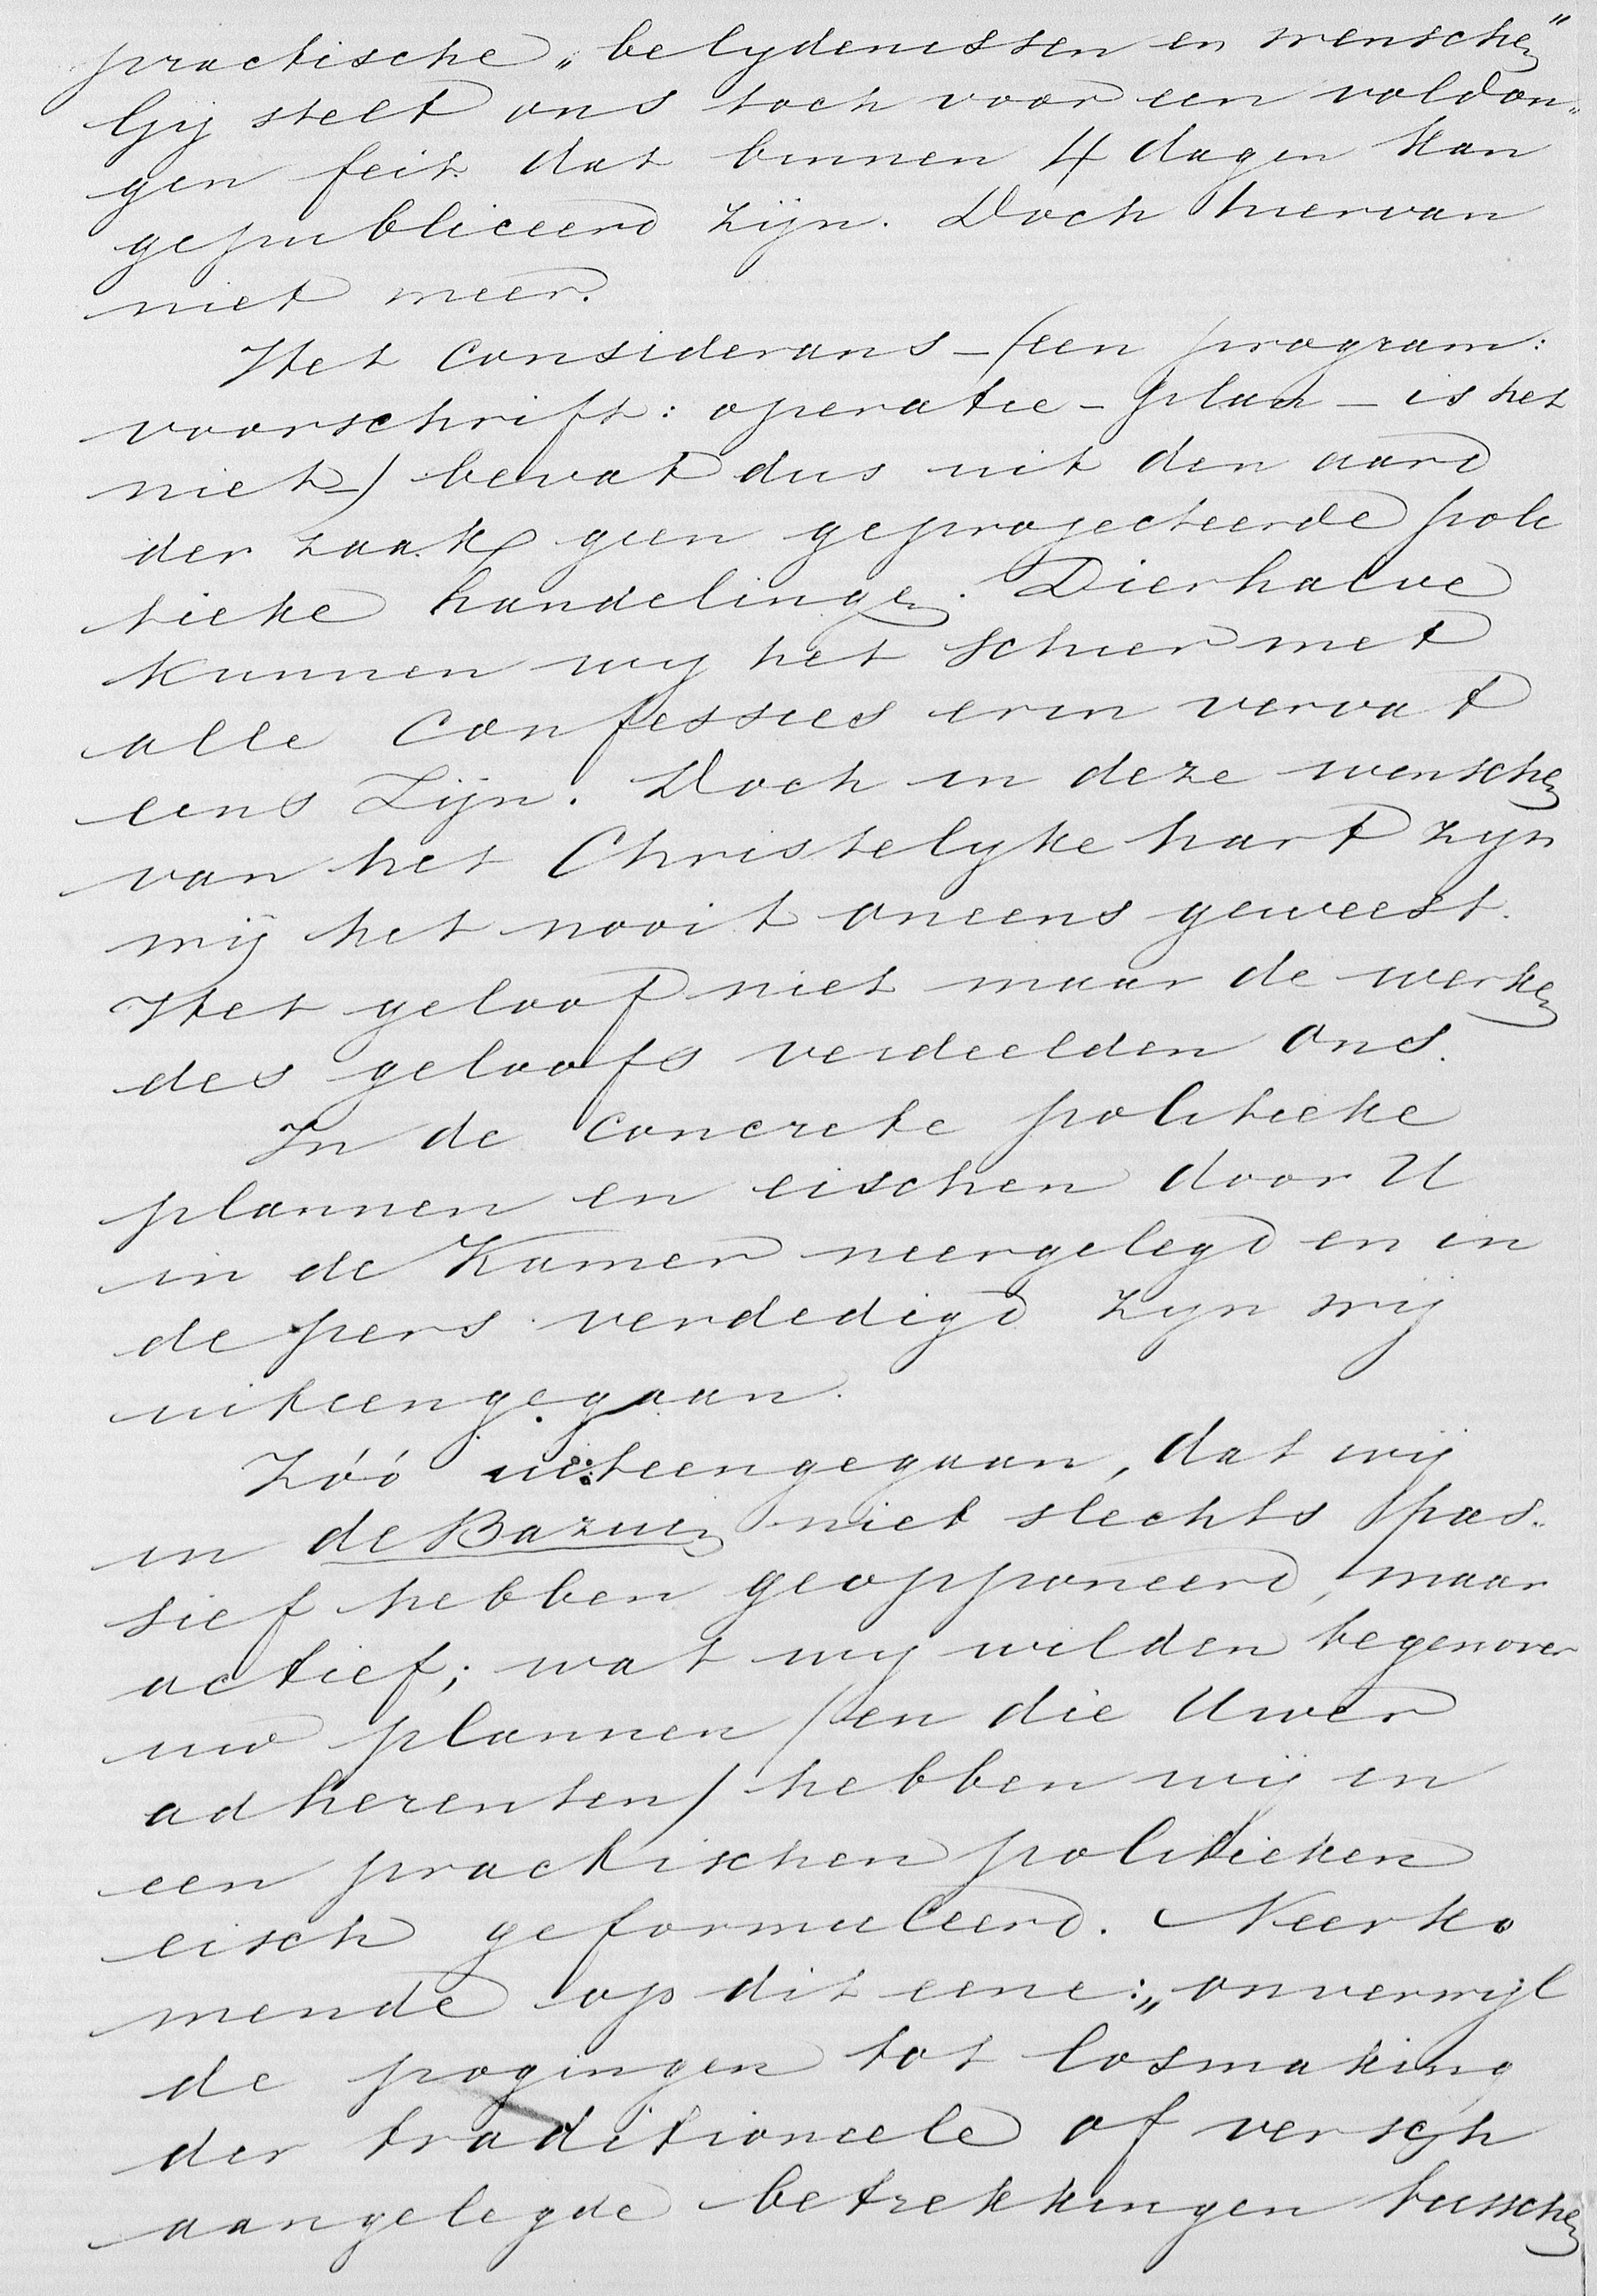 practische „belydenissen en wenschen"
Gij stelt ons toch voor een voldon„
gen feit dat binnen 4 dagen kan
gepubliceerd zijn. Doch hiervan
niet meer.
Het Considerans – (een program:
voorschrift: operatie – plan – is het
niet –) bevat dus uit den aard
der zaak geen geprojecteerde poli
tieke handelingen. Dierhalve
kunnen wy het schier met
alle Confessies erin vervat
eens Zijn. Doch in deze wenschen
van het Christelyke hart zyn
wij het nooit oneens geweest.
Het geloof niet maar de werken
des geloofs verdeelden ons.
In de concrete politieke
plannen en eischen door U
in de Kamer neergelegd en in
de pers verdedigd zyn wij
uiteengegaan.
Zóó uiteengegaan, dat wij
in de Bazuin niet slechts pas„
sief hebben geopponeerd, maar
actief; wat wy wilden tegenover
uw plannen (en die Uwer
adherenten) hebben wij in
een practischen politieken
eisch geformuleerd. Neerko
mende op dit eene: „onverwijl
de pogingen tot losmaking
der traditioneele of versch
aangelegde betrekkingen tusschen